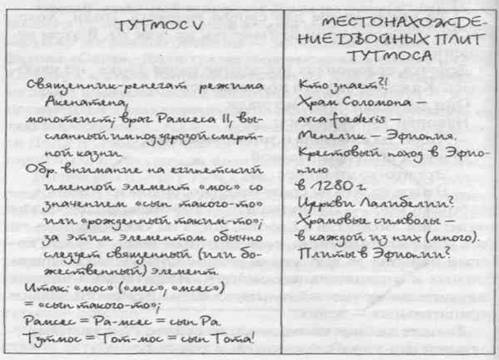 ТУТМОС V
Священник-ренегат режима
Акенатена,
монотеист, враг Рамсеса II, вы-
сланный им под угрозой смерт-
ной казни.
Обр. внимание на египетский
именной элемент «мос» со
значением «сын такого-то»
или «рожденный таким-то»;
за этим элементом обычно
следует священный (или бо-
жественный) элемент.
Итак: «мос» («мес», «мсес»)
= «сын такого-то»;
Рамсес = Ра-мсес = сын Ра.
Тутмос = Тот-мос = сын Тота!
МЕСТОНАХОЖДЕ-
НИЕ ДВОЙНЫХ ПЛИТ
ТУТМОСА
Кто знает?!
Храм Соломона –
arca foederis –
Менелик – Эфиопия.
Крестовый поход в Эфио-
пию
в 1280 г.
Церкви Лалибелии?
Храмовые символы –
в каждой из них (много).
Плиты в Эфиопии?